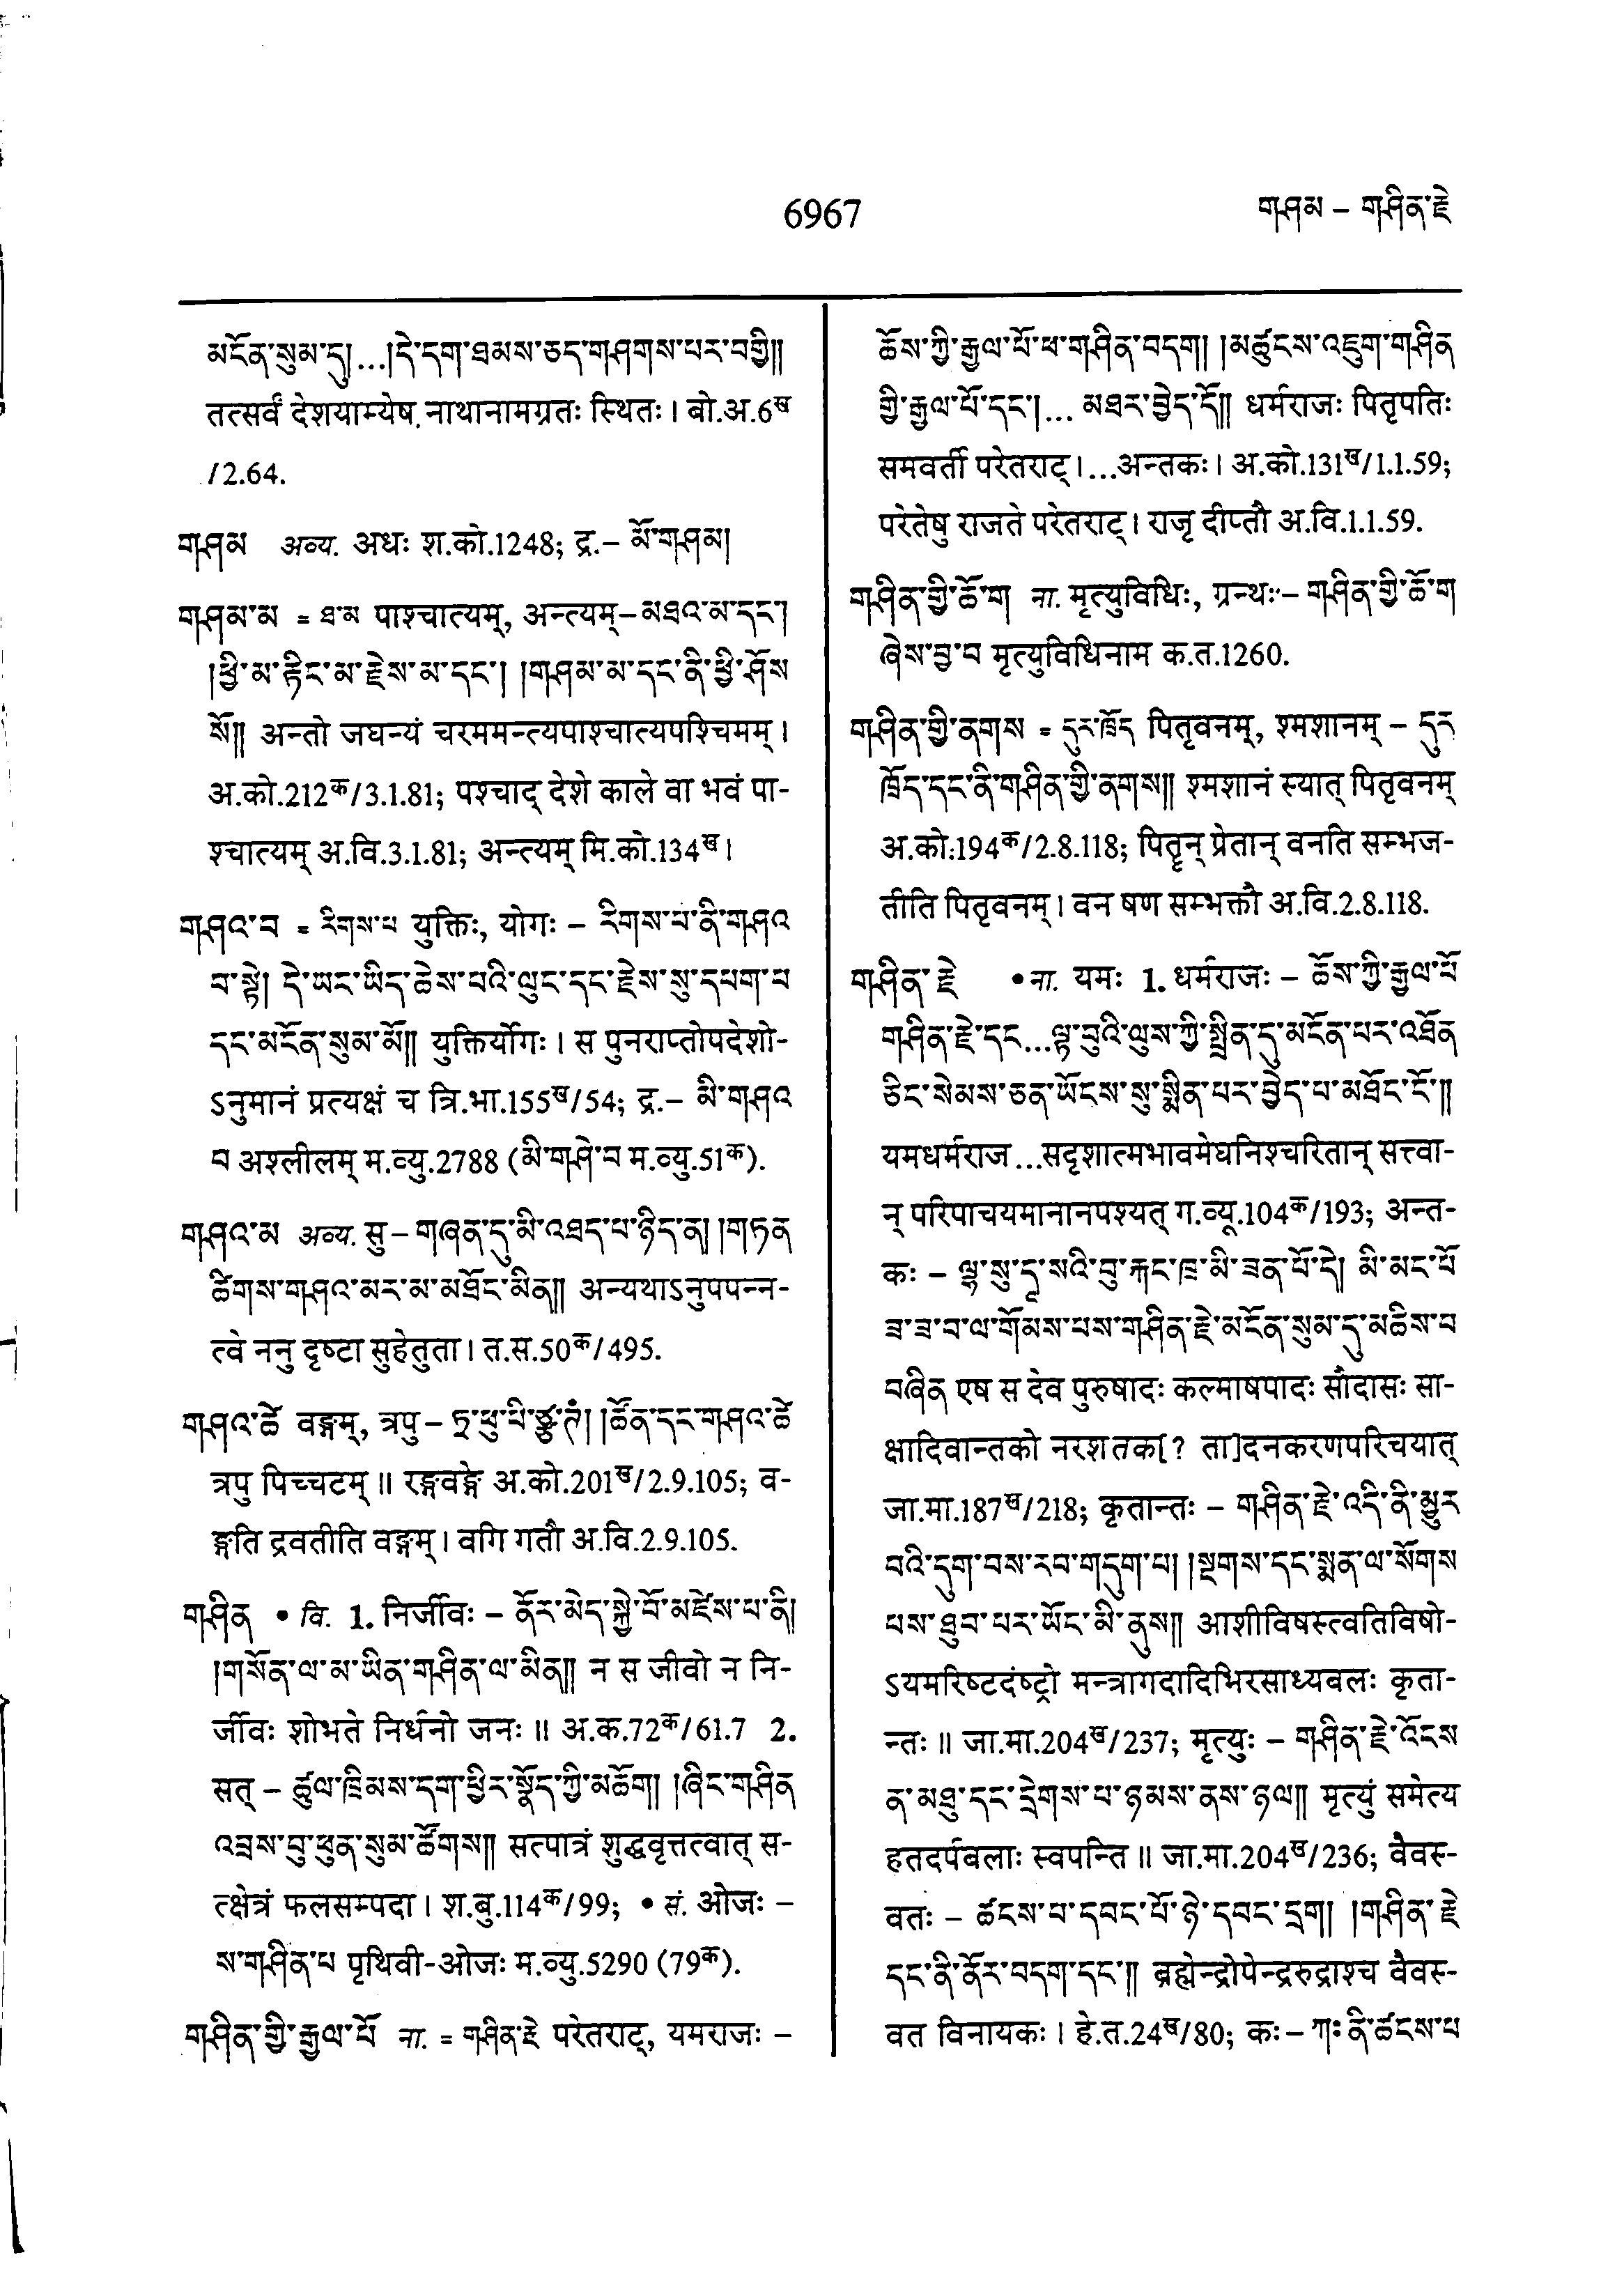 6967
གཤམ – གཤིན་རྗེ
མངོན་སུམ་དུ།...།དེ་དག་ཐམས་ཅད་གཤགས་པར་བགྱི༎
तत्सर्वं देशयाम्येष नाथानामग्रतः स्थितः। बो.अ.6ख
/2.64.
གཤམ अव्य. अधः श.को.1248; द्र.– མོ་གཤམ།
གཤམ་མ = ཐ་མ पाश्चात्यम्, अन्त्यम्–མཐའ་མ་དང་།
།ཕྱི་མ་རྟིང་མ་རྗེས་མ་དང་། །གཤམ་མ་དང་ནི་ཕྱི་ཤོས
སོ༎ अन्तो जघन्यं चरममन्त्यपाश्चात्यपश्चिमम्।
अ.को.212क/3.1.81; पश्चाद् देशे काले वा भवं पा-
श्चात्यम् अ.वि.3.1.81; अन्त्यम् मि.को.134ख।
གཤའ་བ = རིགས་པ युक्तिः, योगः – རིགས་པ་ནི་གཤའ
བ་སྟེ། དེ་ཡང་ཡིད་ཆེས་པའི་ལུང་དང་རྗེས་སུ་དཔག་པ
དང་མངོན་སུམ་མོ༎ युक्तिर्योगः। स पुनराप्तोपदेशो-
ऽनुमानं प्रत्यक्षं च त्रि.भा.155ख/54; द्र.– མི་གཤའ
བ अश्लीलम् म.व्यु.2788 (མི་གཤེ་བ म.व्यु.51क).
གཤའ་མ अव्य. सु – གཞན་དུ་མི་འཐད་པ་ཉིད་ན། །གཏན
ཚིགས་གཤའ་མར་མ་མཐོང་མིན༎ अन्यथाऽनुपपन्न-
त्वे ननु दृष्टा सुहेतुता। त.स.50क/495.
གཤའ་ཚེ वङ्गम्, त्रपु – ཏྲ་ཕུ་པི་ཙྪ་ཊཾ། །ཚོན་དང་གཤའ་ཚེ
त्रपु पिच्चटम्॥ रङ्गवङ्गे अ.को.201ख/2.9.105; व-
ङ्गति द्रवतीति वङ्गम्। वगि गतौ अ.वि.2.9.105.
གཤིན • वि. 1. निर्जीवः – ནོར་མེད་སྐྱེ་བོ་མཛེས་པ་ནི།
།གསོན་ལ་མ་ཡིན་གཤིན་ལ་མིན༎ न स जीवो न नि-
र्जीवः शोभते निर्धनो जनः॥ अ.क.72क/61.7 2.
सत् – ཚུལ་ཁྲིམས་དག་ཕྱིར་སྣོད་ཀྱི་མཆོག། །ཞིང་གཤིན
འབྲས་བུ་ཕུན་སུམ་ཚོགས༎ सत्पात्रं शुद्धवृत्तत्वात् स-
त्क्षेत्रं फलसम्पदा। श.बु.114क/99; • सं. ओजः –
ས་གཤིན་པ पृथिवी-ओजः म.व्यु.5290 (79क).
གཤིན་གྱི་རྒྱལ་པོ ना. = གཤིན་རྗེ परेतराट्, यमराजः –
ཆོས་ཀྱི་རྒྱལ་པོ་ཕ་གཤིན་བདག། །མཚུངས་འཇུག་གཤིན
གྱི་རྒྱལ་པོ་དང་།... མཐར་བྱེད་དོ༎ धर्मराजः पितृपतिः
समवर्ती परेतराट्।...अन्तकः। अ.को.131ख/1.1.59;
परेतेषु राजते परेतराट्। राजृ दीप्तौ अ.वि.1.1.59.
གཤིན་གྱི་ཆོ་ག ना. मृत्युविधिः, ग्रन्थः – གཤིན་གྱི་ཆོ་ག
ཞེས་བྱ་བ मृत्युविधिनाम क.त.1260.
གཤིན་གྱི་ནགས = དུར་ཁྲོད पितृवनम्, श्मशानम् – དུར
ཁྲོད་དང་ནི་གཤིན་གྱི་ནགས༎ श्मशानं स्यात् पितृवनम्
अ.को.194क/2.8.118; पितॄन् प्रेतान् वनति सम्भज-
तीति पितृवनम्। वन षण सम्भक्तौ अ.वि.2.8.118.
གཤིན་རྗེ • ना. यमः 1. धर्मराजः – ཆོས་ཀྱི་རྒྱལ་པོ
གཤིན་རྗེ་དང...ལྟ་བུའི་ལུས་ཀྱི་སྤྲིན་དུ་མངོན་པར་འཐོན
ཅིང་སེམས་ཅན་ཡོངས་སུ་སྨིན་པར་བྱེད་པ་མཐོང་ངོ་༎
यमधर्मराज...सदृशात्मभावमेघनिश्चरितान् सत्त्वा-
न् परिपाचयमानानपश्यत् ग.व्यू.104क/193; अन्त-
कः – ལྷ་སུ་དཱ་སའི་བུ་རྐང་ཁྲ་མི་ཟན་པོ་དེ། མི་མང་པོ
ཟ་ཟ་བ་ལ་གོམས་པས་གཤིན་རྗེ་མངོན་སུམ་དུ་མཆིས་པ
བཞིན एष स देव पुरुषादः कल्माषपादः सौदासः सा-
क्षादिवान्तको नरशतक[? ता]दनकरणपरिचयात्
जा.मा.187ख/218; कृतान्तः – གཤིན་རྗེ་འདི་ནི་མྱུར
བའི་དུག་བས་རབ་གདུག་པ། །སྔགས་དང་སྨན་ལ་སོགས
པས་ཐུབ་པར་ཡོང་མི་ནུས༎ आशीविषस्त्वतिविषो-
ऽयमरिष्टदंष्ट्रो मन्त्रागदादिभिरसाध्यबलः कृता-
न्तः॥ जा.मा.204ख/237; मृत्युः – གཤིན་རྗེ་འོངས
ན་མཐུ་དང་དྲེགས་པ་ཉམས་ནས་ཉལ༎ मृत्युं समेत्य
हतदर्पबलाः स्वपन्ति॥ जा.मा.204ख/236; वैवस्-
वतः – ཚངས་པ་དབང་པོ་ཉེ་དབང་དྲག། །གཤིན་རྗེ
དང་ནི་ནོར་བདག་དང་༎ ब्रह्मेन्द्रोपेन्द्ररुद्राश्च वैवस्-
वत विनायकः। हे.त.24ख/80; कः – ཀཿ་ནི་ཚངས་པ